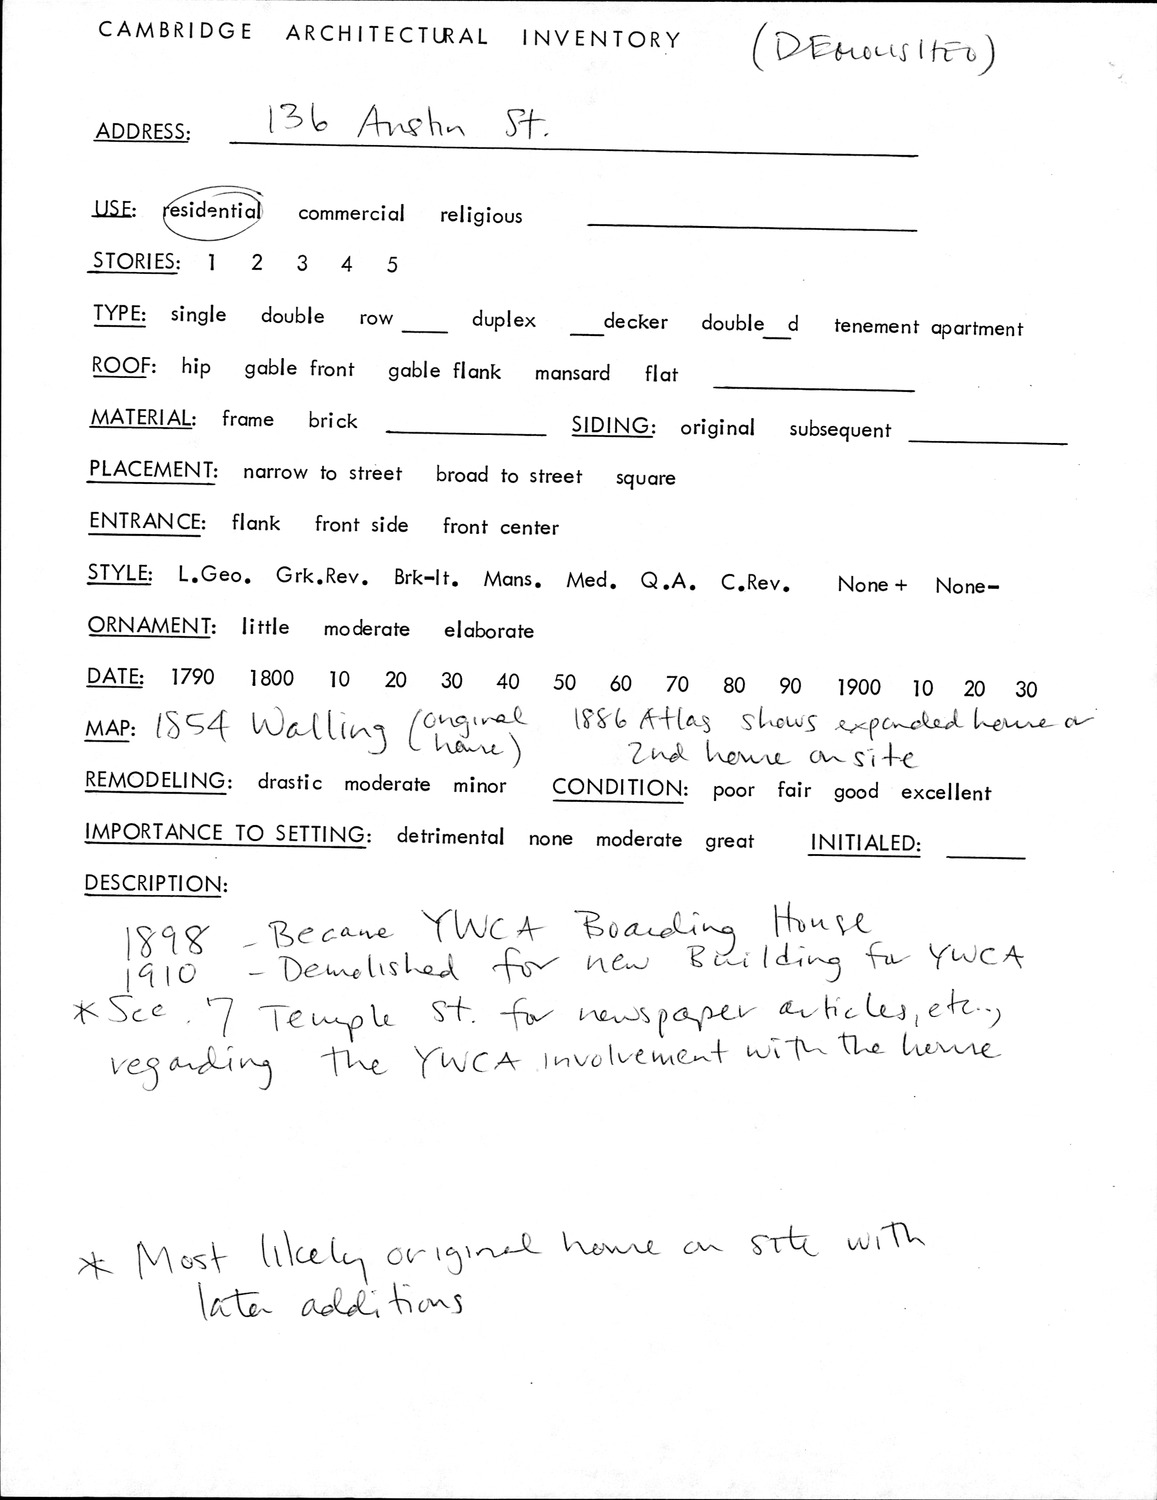 CAMBRIDGE ARCHITECTURAL INVENTORY (DEMOLISHED)
ADDRESS: 136 Austin St.
USE: residential commercial religious
STORIES: 1 2 3 4 5
TYPE: single double row ____ duplex ___decker double__d tenement apartment
ROOF: hip gable front gable flank mansard flat
MATERIAL: frame brick ____ SIDING: original subsequent ____
PLACEMENT: narrow to street broad to street square
ENTRANCE: flank front side front center
STYLE: L.Geo. Grk.Rev. Brk-It. Mans. Med. Q.A. C.Rev. None + None-
ORNAMENT: little moderate elaborate
DATE: 1790 1800 10 20 30 40 50 60 70 80 90 1900 10 20 30
MAP: 1854 Walling (original home) 1886 Atlas shows expanded home or
2nd home on site
REMODELING: drastic moderate minor CONDITION: poor fair good excellent
IMPORTANCE TO SETTING: detrimental none moderate great INITIALED: ____
DESCRIPTION:
1898 - Became YWCA Boarding House
1910 - Demolished for new Building for YWCA
* See 7 Temple St. for newspaper articles, etc.,
regarding the YWCA involvement with the home
* Most likely original home on site with
later additions